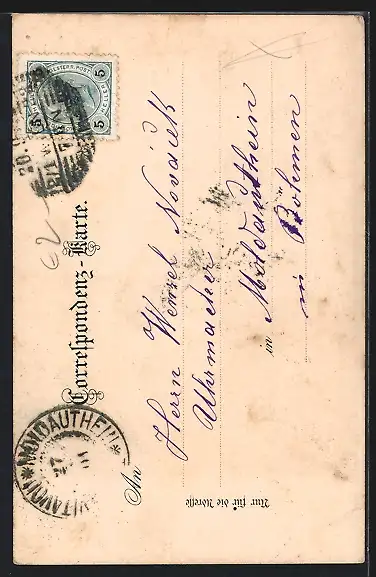 Correspondenz-Karte.
An
Herrn Wenzel Novaček
Uhrmacher
in Moldauthein
in Böhmen
Nur für die Adresse
MOLDAUTHEIN
5 5
ÖSTERR. POST
62